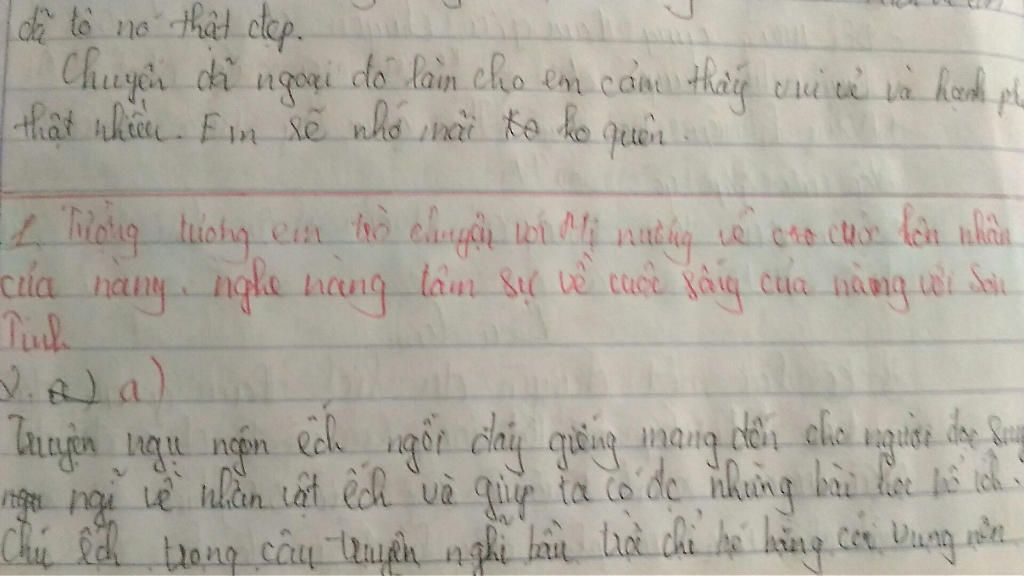 đã tô nó thật đẹp.
Chuyến dã ngoại đó làm cho em cảm thấy vui vẻ và hạnh ph
thật nhiều. Em sẽ nhớ mãi ko quên.
1. Tưởng tượng em trò chuyện với Mị nương về cuộc hôn nhân
của nàng, nghe nàng tâm sự về cuộc sống của nàng với Sơn
Tinh
2. a) a)
Truyện ngụ ngôn ếch ngồi đáy giếng mang đến cho người đọc suy
nghĩ về nhân vật ếch và giúp ta có đc những bài học bổ ích.
Chú ếch trong câu truyện nghĩ bầu trời chỉ bé bằng cái vung nên